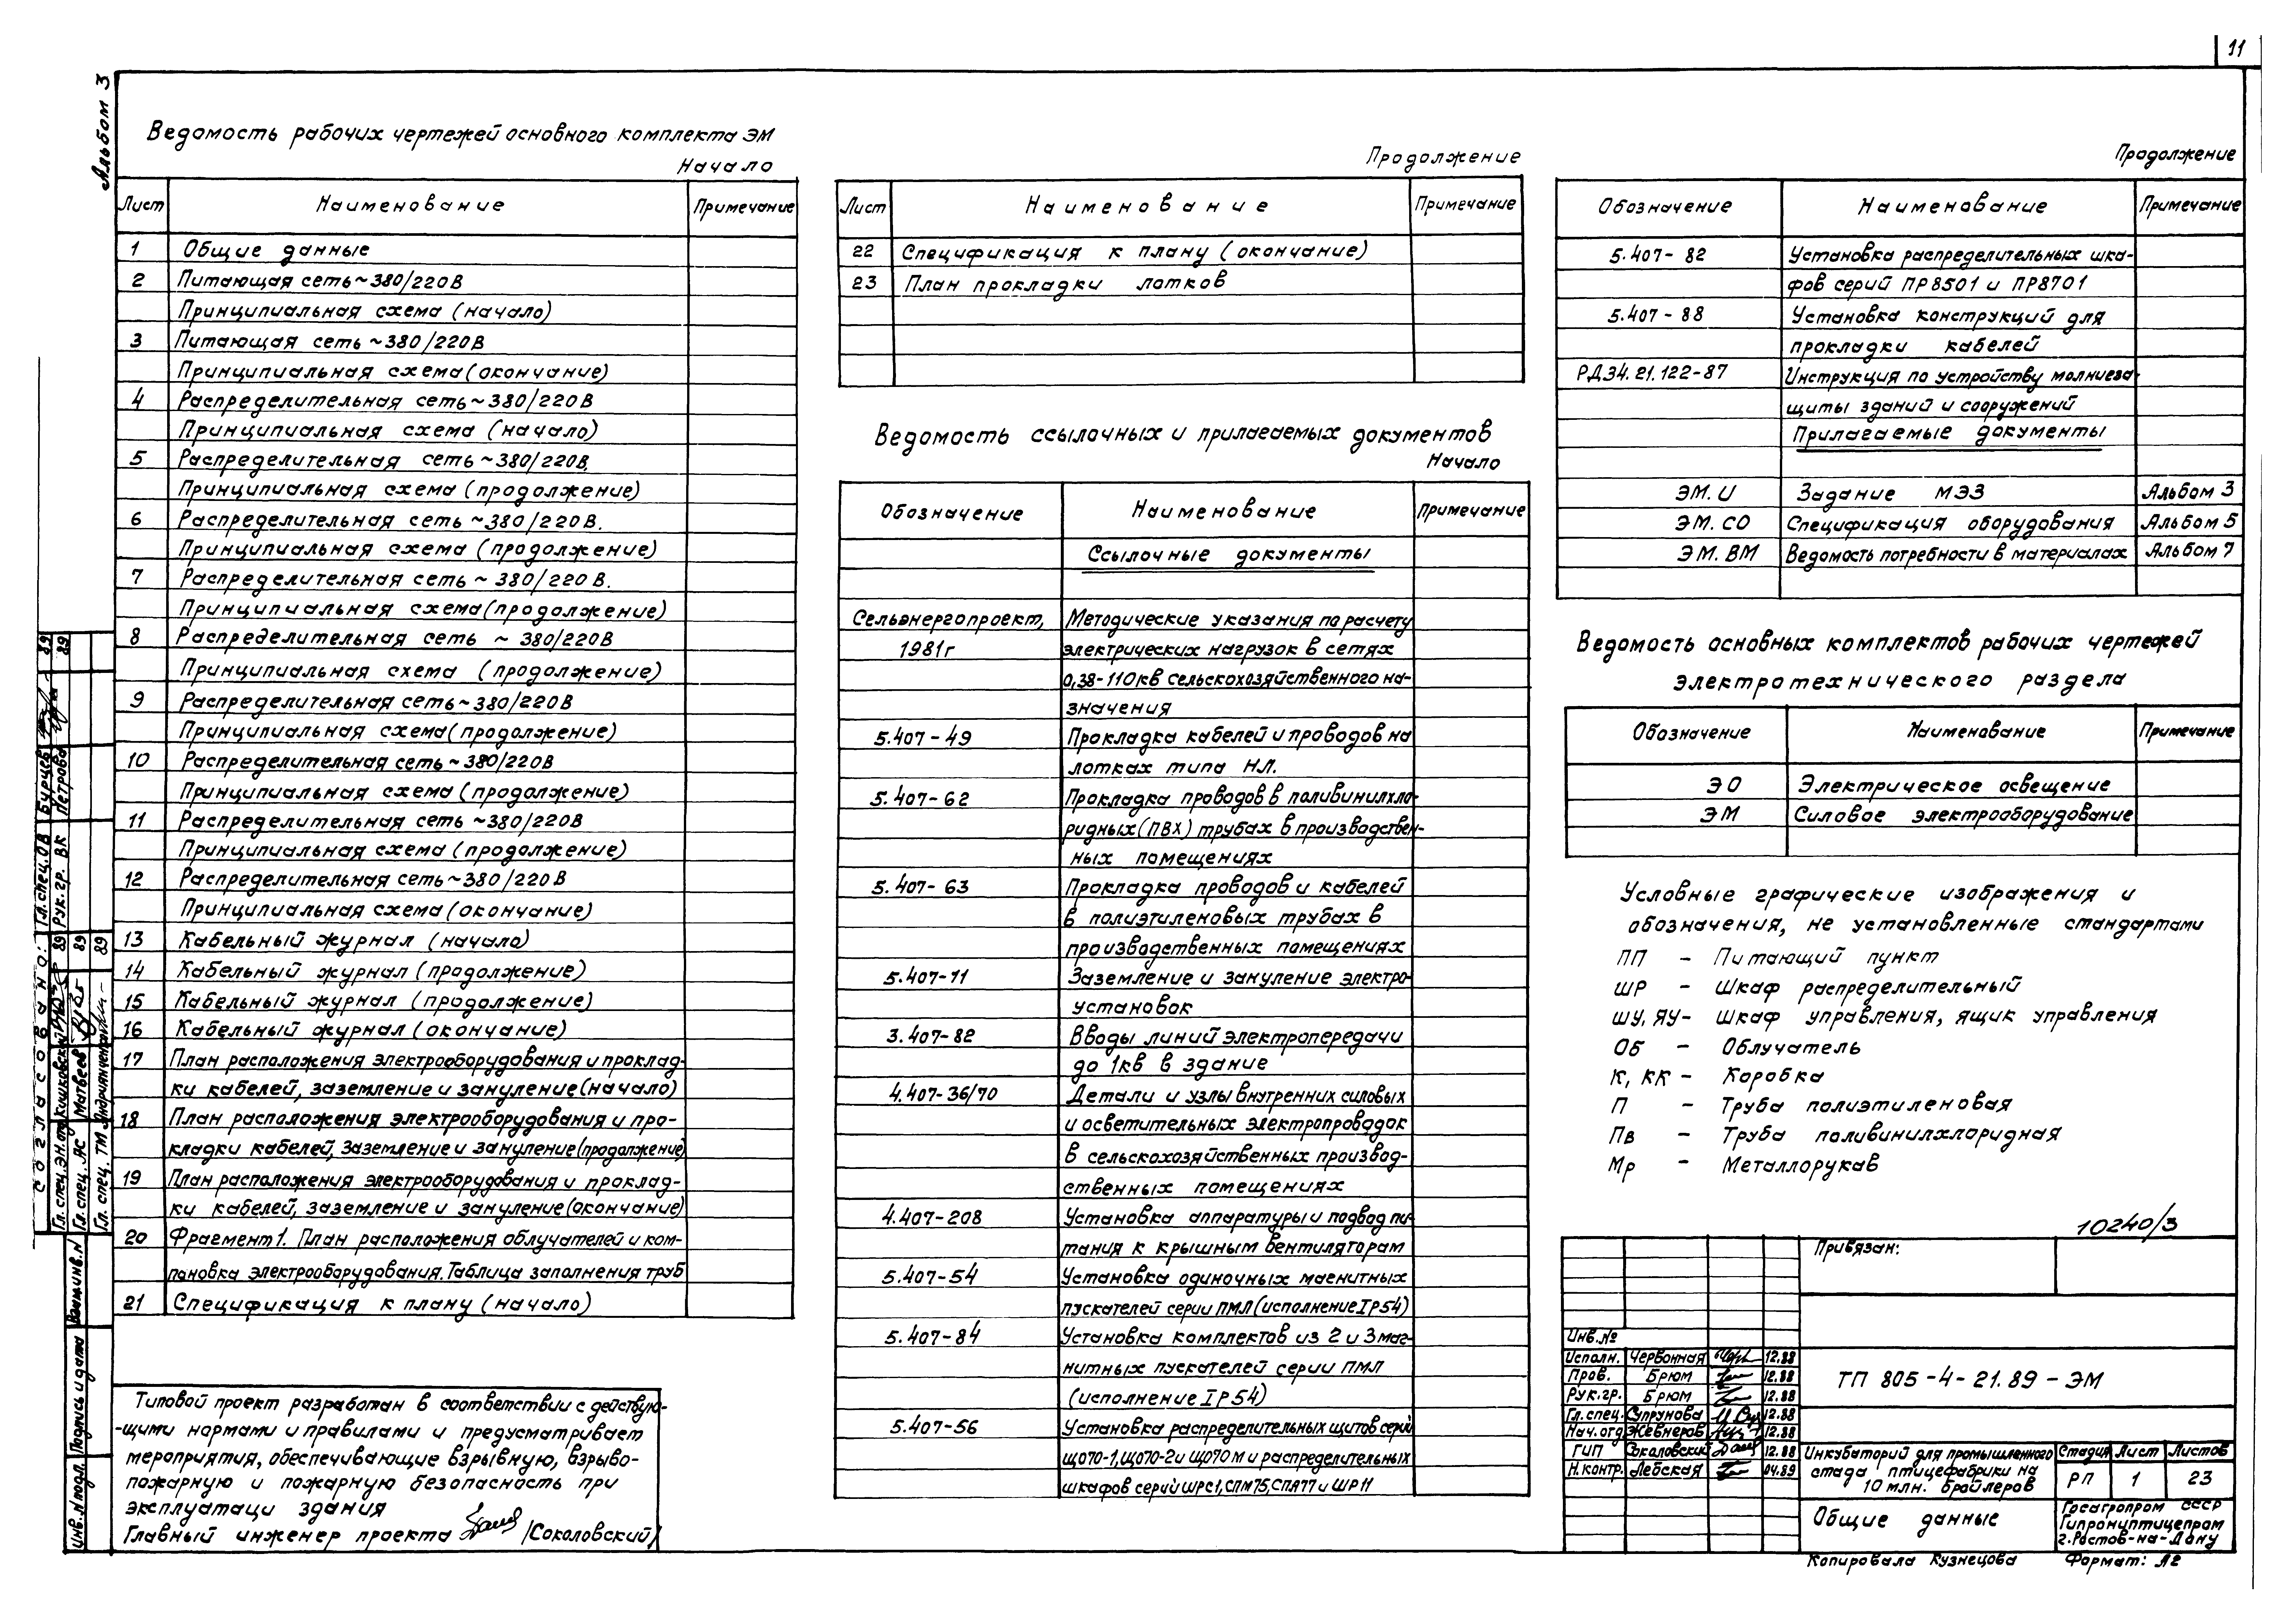 11
Альбом 3
Ведомость рабочих чертежей основного комплекта ЭМ
Начало
Лист Наименование Примечание
1 Общие данные
2 Питающая сеть ~380/220В
Принципиальная схема (начало)
3 Питающая сеть ~380/220В
Принципиальная схема (окончание)
4 Распределительная сеть ~380/220В
Принципиальная схема (начало)
5 Распределительная сеть ~380/220В.
Принципиальная схема (продолжение)
6 Распределительная сеть ~380/220В.
Принципиальная схема (продолжение)
7 Распределительная сеть ~ 380/220В.
Принципиальная схема (продолжение)
8 Распределительная сеть ~ 380/220В
Принципиальная схема (продолжение)
9 Распределительная сеть ~380/220В
Принципиальная схема (продолжение)
10 Распределительная сеть ~380/220В
Принципиальная схема (продолжение)
11 Распределительная сеть ~380/220В
Принципиальная схема (продолжение)
12 Распределительная сеть ~380/220В
Принципиальная схема (окончание)
13 Кабельный журнал (начало)
14 Кабельный журнал (продолжение)
15 Кабельный журнал (продолжение)
16 Кабельный журнал (окончание)
17 План расположения электрооборудования и проклад-
ки кабелей, заземление и зануление (начало)
18 План расположения электрооборудования и про-
кладки кабелей, заземление и зануление (продолжение)
19 План расположения электрооборудования и проклад-
ки кабелей, заземление и зануление (окончание)
20 Фрагмент 1. План расположения облучателей и ком-
пановка электрооборудования. Таблица заполнения труб
21 Спецификация к плану (начало)
Типовой проект разработан в соответствии с действую-
-щими нормами и правилами и предусматривает
мероприятия, обеспечивающие взрывную, взрыво-
пожарную и пожарную безопасность при
эксплуатаци здания
Главный инженер проекта /Соколовский/
Продолжение
Лист Наименование Примечание
22 Спецификация к плану (окончание)
23 План прокладки лотков
Ведомость ссылочных и прилагаемых документов
Начало
Обозначение Наименование Примечание
Ссылочные документы
Сельэнергопроект, Методические указания по расчету
1981г электрических нагрузок в сетях
0,38-110кв сельскохозяйственного на-
значения
5.407-49 Прокладка кабелей и проводов на
лотках типа НЛ.
5.407-62 Прокладка проводов в поливинилхло-
ридных (ПВХ) трубах в производствен-
ных помещениях
5.407-63 Прокладка проводов и кабелей
в полиэтиленовых трубах в
производственных помещениях
5.407-11 Заземление и зануление электро-
установок
3.407-82 Вводы линий электропередачи
до 1кв в здание
4.407-36/70 Детали и узлы внутренних силовых
и осветительных электропроводок
в сельскохозяйственных производ-
ственных помещениях
4.407-208 Установка аппаратуры и подвод пи-
тания к крышным вентиляторам
5.407-54 Установка одиночных магнитных
пускателей серии ПМЛ (исполнение IP54)
5.407-84 Установка комплектов из 2 и 3 маг-
нитных пускателей серии ПМЛ
(исполнение IP54)
5.407-56 Установка распределительных щитов серий
ЩО70-1, ЩО70-2 и ЩО70М и распределительных
шкафов серий ШРС1, СПМ75, СПА77 и ШР11
Продолжение
Обозначение Наименование Примечание
5.407-82 Установка распределительных шка-
фов серий ПР8501 и ПР8701
5.407-88 Установка конструкций для
прокладки кабелей
РД34.21.122-87 Инструкция по устройству молниеза-
щиты зданий и сооружений
Прилагаемые документы
ЭМ.И Задание МЭЗ Альбом 3
ЭМ.СО Спецификация оборудования Альбом 5
ЭМ.ВМ Ведомость потребности в материалах Альбом 7
Ведомость основных комплектов рабочих чертежей
электротехнического раздела
Обозначение Наименование Примечание
ЭО Электрическое освещение
ЭМ Силовое электрооборудование
Условные графические изображения и
обозначения, не установленные стандартами
ПП - Питающий пункт
ШР - Шкаф распределительный
ШУ, ЯУ- Шкаф управления, ящик управления
Об - Облучатель
К, КК - Коробка
П - Труба полиэтиленовая
Пв - Труба поливинилхлоридная
Мр - Металлорукав
10240/3
Привязан:
Инв.№
Исполн. Червонная 12.88
Пров. Брюм 12.88
Рук.гр. Брюм 12.88
Гл.спец. Супрунова 12.88
Нач.отд Жевнеров 12.88
ГИП Соколовский 12.88
Н.контр. Лебская 04.89
ТП 805-4-21.89-ЭМ
Инкубаторий для промышленного
стада птицефабрики на
10 млн. бройлеров
Стадия Лист Листов
РП 1 23
Общие данные
Госагропром СССР
Гипрониптицепром
г.Ростов-на-Дону
Копировала Кузнецова Формат: А2
Согласовано:
Гл.спец.ОВ Бурцев 89
Рук. гр. ВК Петрова 89
Гл.спец.ЭН.отд Кишковский 89
Гл.спец. АС Матвеев 89
Гл. спец. ТМ 89
Взам.инв.N
Подпись и дата
Инв.N подл.